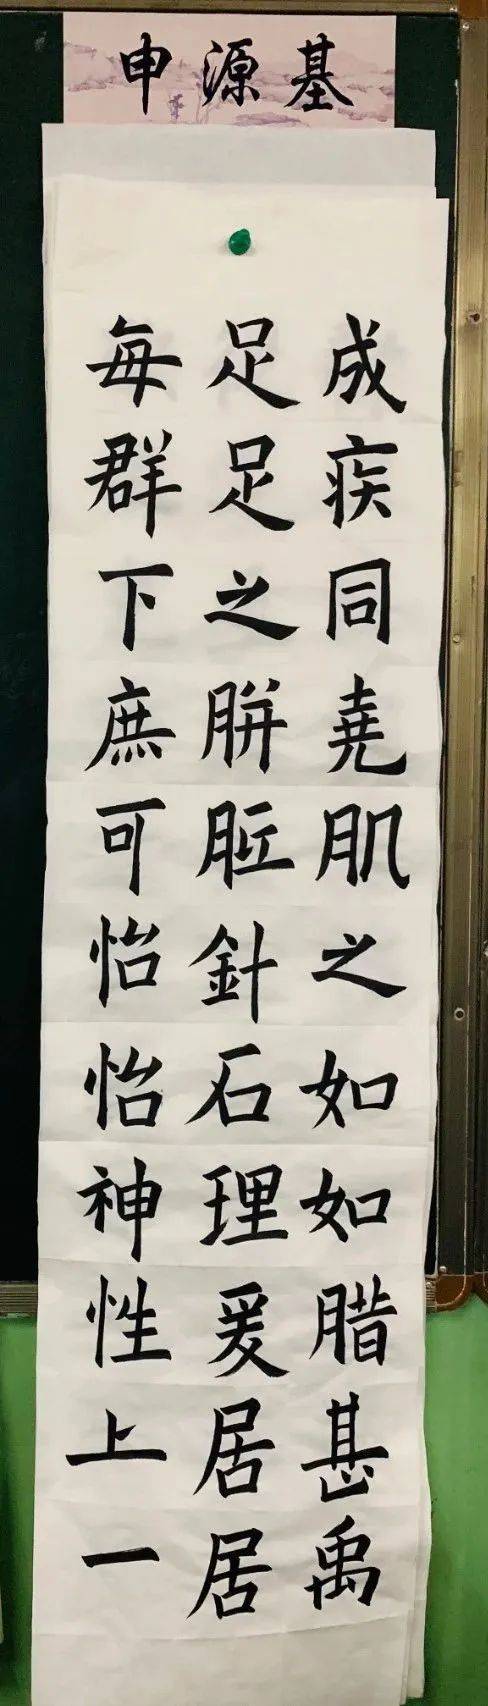 申源基
成疾同堯肌之如如腊甚禹
足足之胼胝針石理爰居居
每群下庶可怡怡神性上一